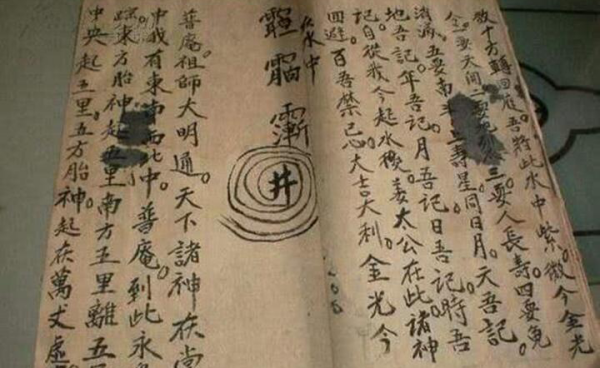 敕十方轉回庭。吾將此水中紫微今金光
令。一要天開二要地
三要人長壽四要免
消滿。五要南斗六壽星。同日月。天吾記
地吾記。年吾記。月吾記日吾記。時吾
記。自從我今起水後。姜太公在此諸神
回避百吾禁忌。大吉大利。金光令
水中
井
普庵祖師大明通。天下諸神在當
中我有東南西北中。普庵到此永
踪。東方胎神起五里南方五里離五
中央起五里五方胎神起在萬丈虛